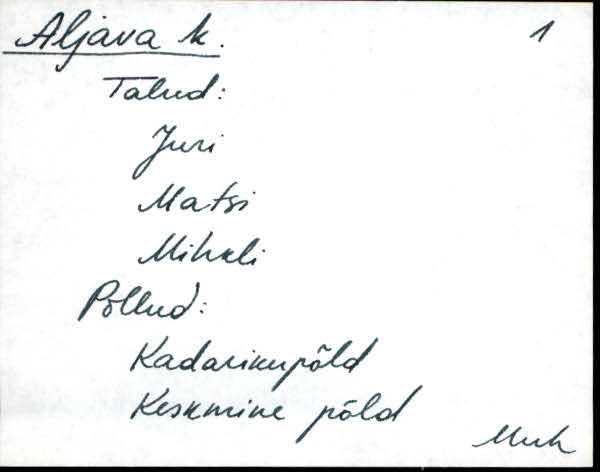 Aljava k. 1
Talud:
Juri
Matsi
Mihkli
Põllud:
Kadarikupõld
Keskmine põld
Muh